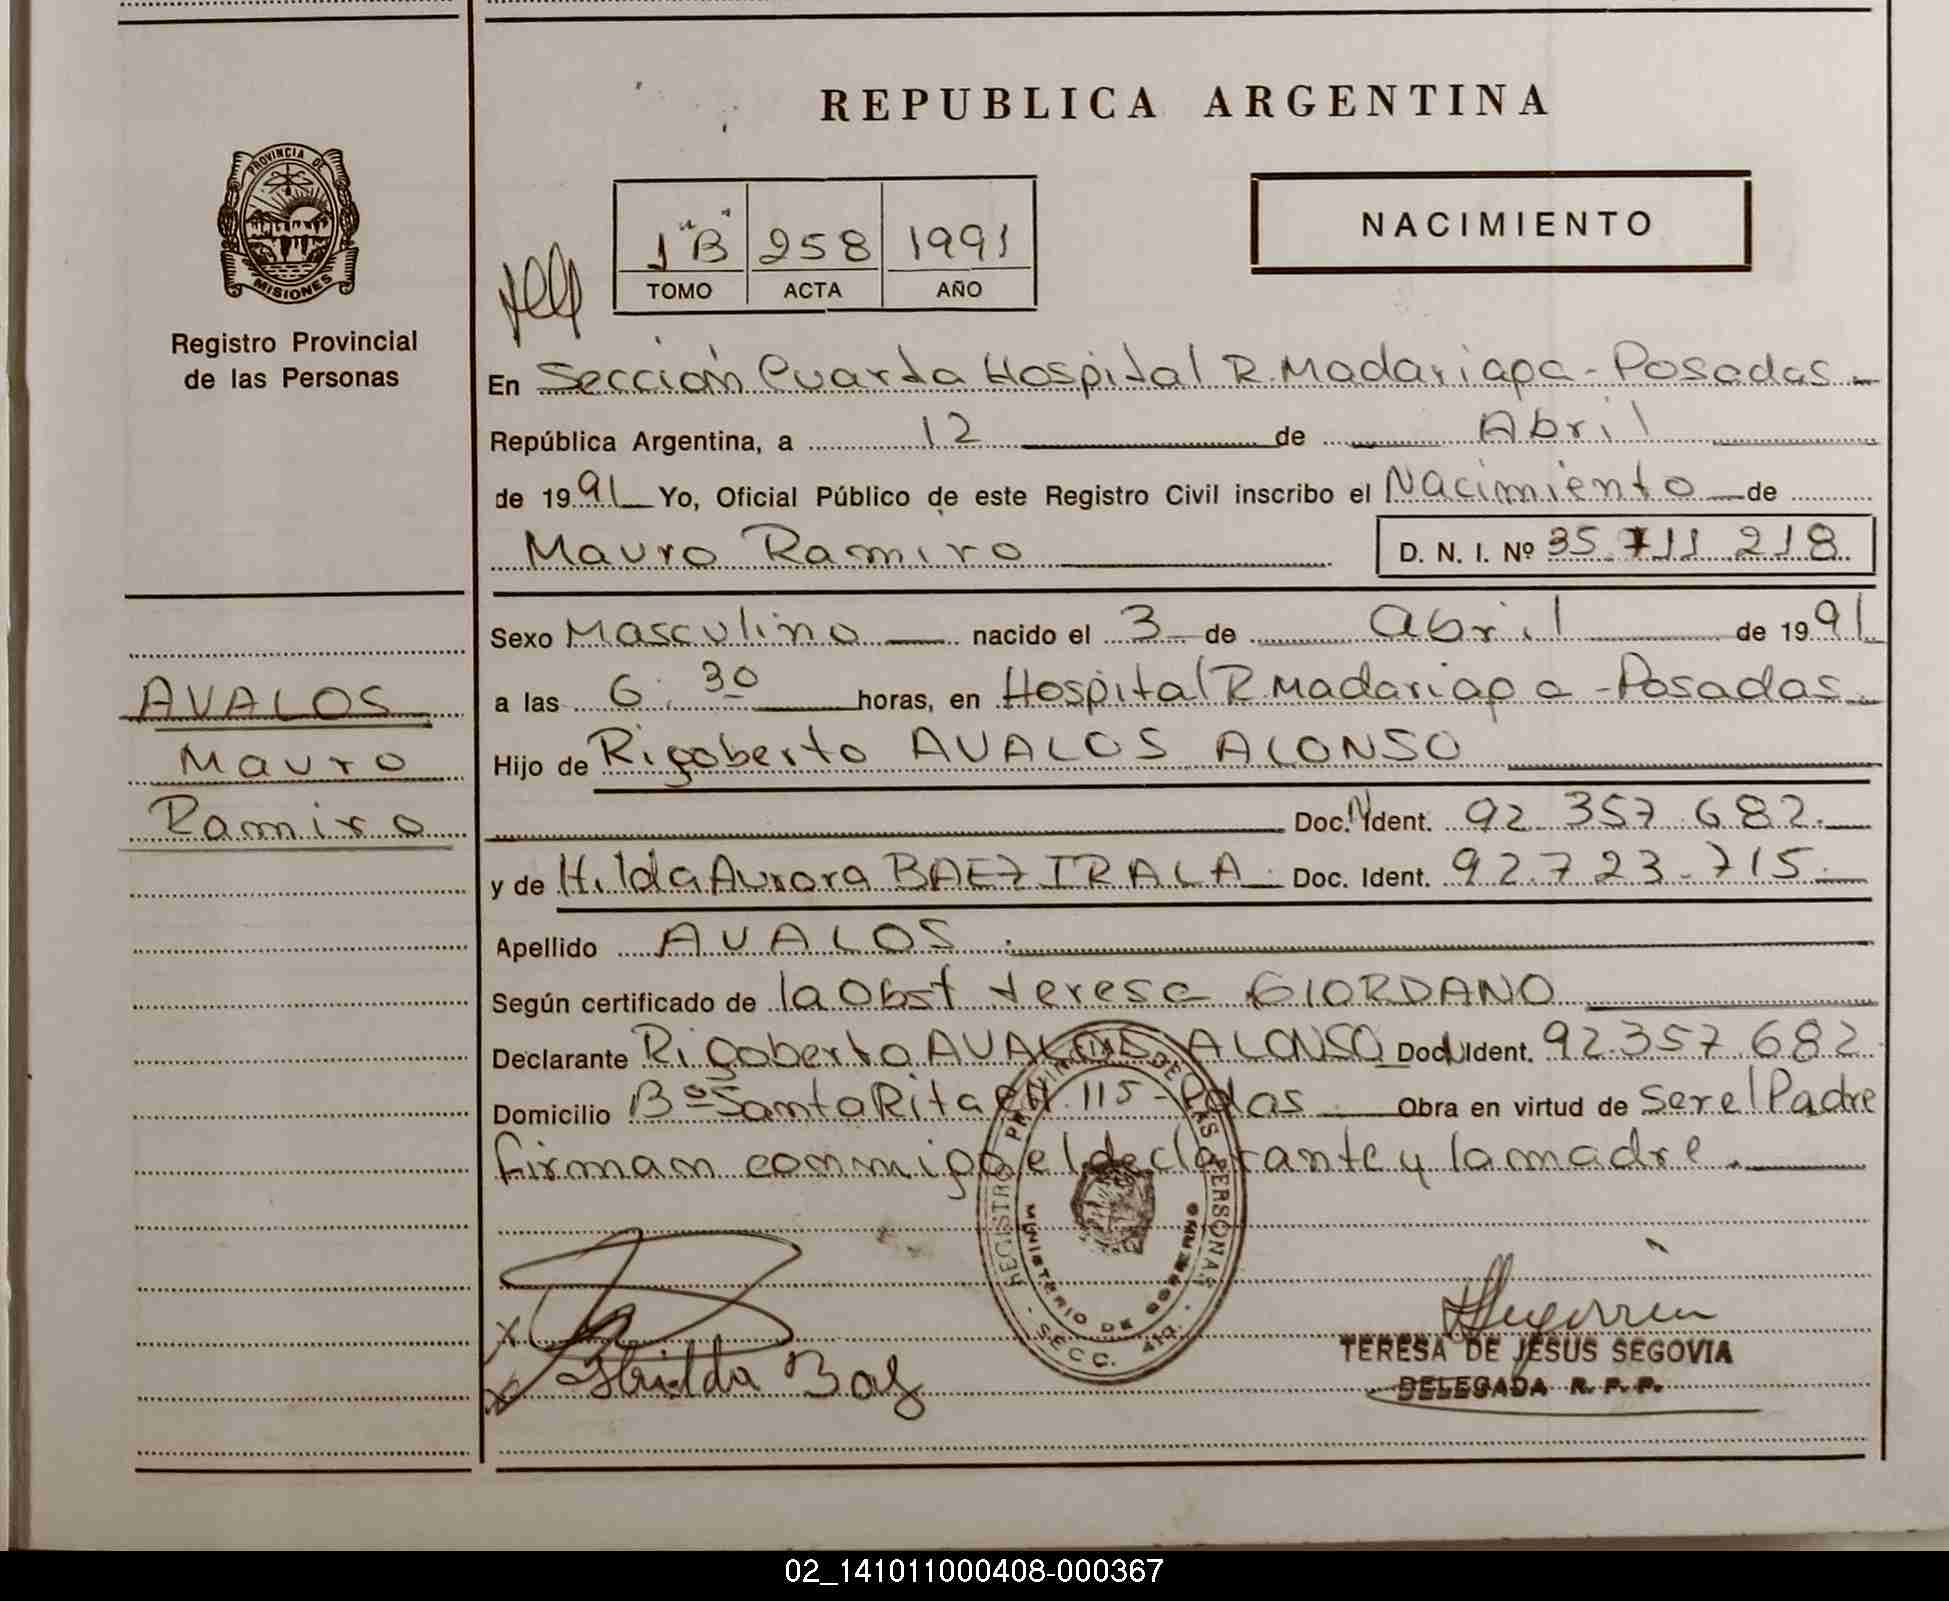 REPUBLICA ARGENTINA
PROVINCIA DE
MISIONES
Registro Provincial
de las Personas
1 "B" 258 1991
TOMO ACTA AÑO
NACIMIENTO
En Sección Cuarta Hospital R. Madariaga - Posadas
República Argentina, a 12 de Abril
de 1991 Yo, Oficial Público de este Registro Civil inscribo el Nacimiento de
Mauro Ramiro D. N. I. Nº 35.711.218
Sexo Masculino nacido el 3 de abril de 1991
a las 6:30 horas, en Hospital R. Madariaga - Posadas
Hijo de Rigoberto AVALOS ALONSO
Doc. Ident. 92.357.682
y de Hilda Aurora BAEZ IRALA Doc. Ident. 92.723.715
Apellido AVALOS
Según certificado de la Obst Teresa GIORDANO
Declarante Rigoberto AVALOS ALONSO Doc. Ident. 92.357.682
Domicilio Bº Santa Rita CH. 115 - Pdas Obra en virtud de ser el Padre
firman conmigo el declarante y la madre.
AVALOS
Mauro
Ramiro
REGISTRO PROVINCIAL DE LAS PERSONAS
MINISTERIO DE GOBIERNO
SECC. 4ta.
x
x Hilda Baez
TERESA DE JESUS SEGOVIA
DELEGADA R. P. P.
02_141011000408-000367